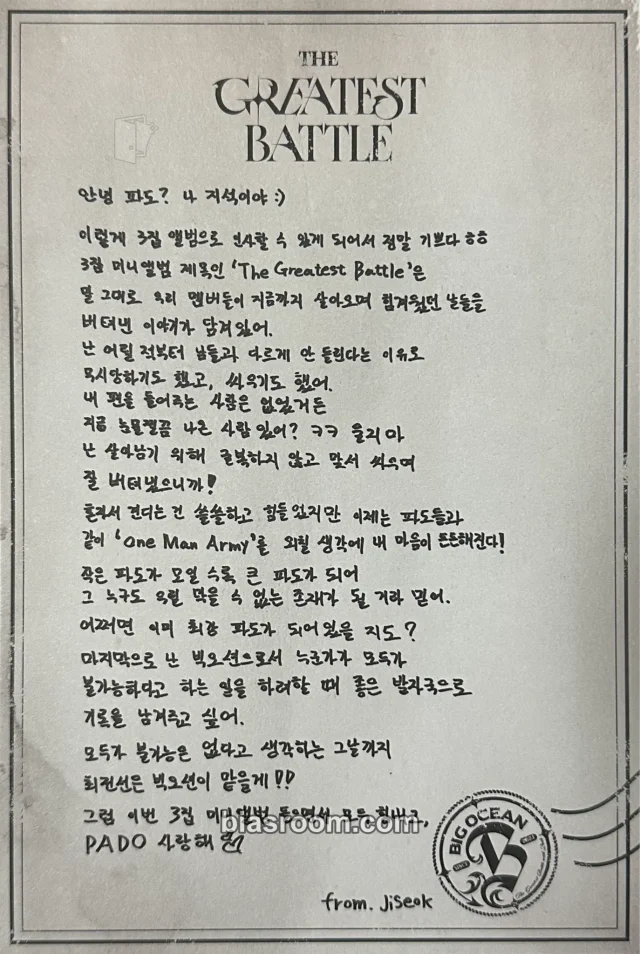 THE
GREATEST
BATTLE
안녕 파도? 나 지석이야 :)
이렇게 3집 앨범으로 인사할 수 있게 되어서 정말 기쁘다 ㅎㅎ
3집 미니앨범 제목인 'The Greatest Battle'은
말 그대로 우리 멤버들이 지금까지 살아오며 힘겨웠던 날들을
버텨낸 이야기가 담겨있어.
난 어릴 적부터 남들과 다르게 안 들린다는 이유로
무시당하기도 했고, 싸우기도 했어.
내 편을 들어주는 사람은 없었거든
지금 눈물찔끔 나온 사람 있어? ㅋㅋ 울지마
난 살아남기 위해 굴복하지 않고 맞서 싸우며
잘 버텨냈으니까!
혼자서 견디는 건 쓸쓸하고 힘들었지만 이제는 파도들과
같이 'One Man Army'를 외칠 생각에 내 마음이 든든해진다!
작은 파도가 모일 수록 큰 파도가 되어
그 누구도 우릴 막을 수 없는 존재가 될 거라 믿어.
어쩌면 이미 최강 파도가 되어있을 지도?
마지막으로 난 빅오션으로서 누군가가 모두가
불가능하다고 하는 일을 하려할 때 좋은 발자국으로
기록을 남겨주고 싶어.
모두가 불가능은 없다고 생각하는 그날까지
최전선은 빅오션이 맡을게!!
그럼 이번 3집 미니앨범 들으면서 모두 힘내고,
biasroom.com
PADO 사랑해
BIG OCEAN
B
from. JiSeok